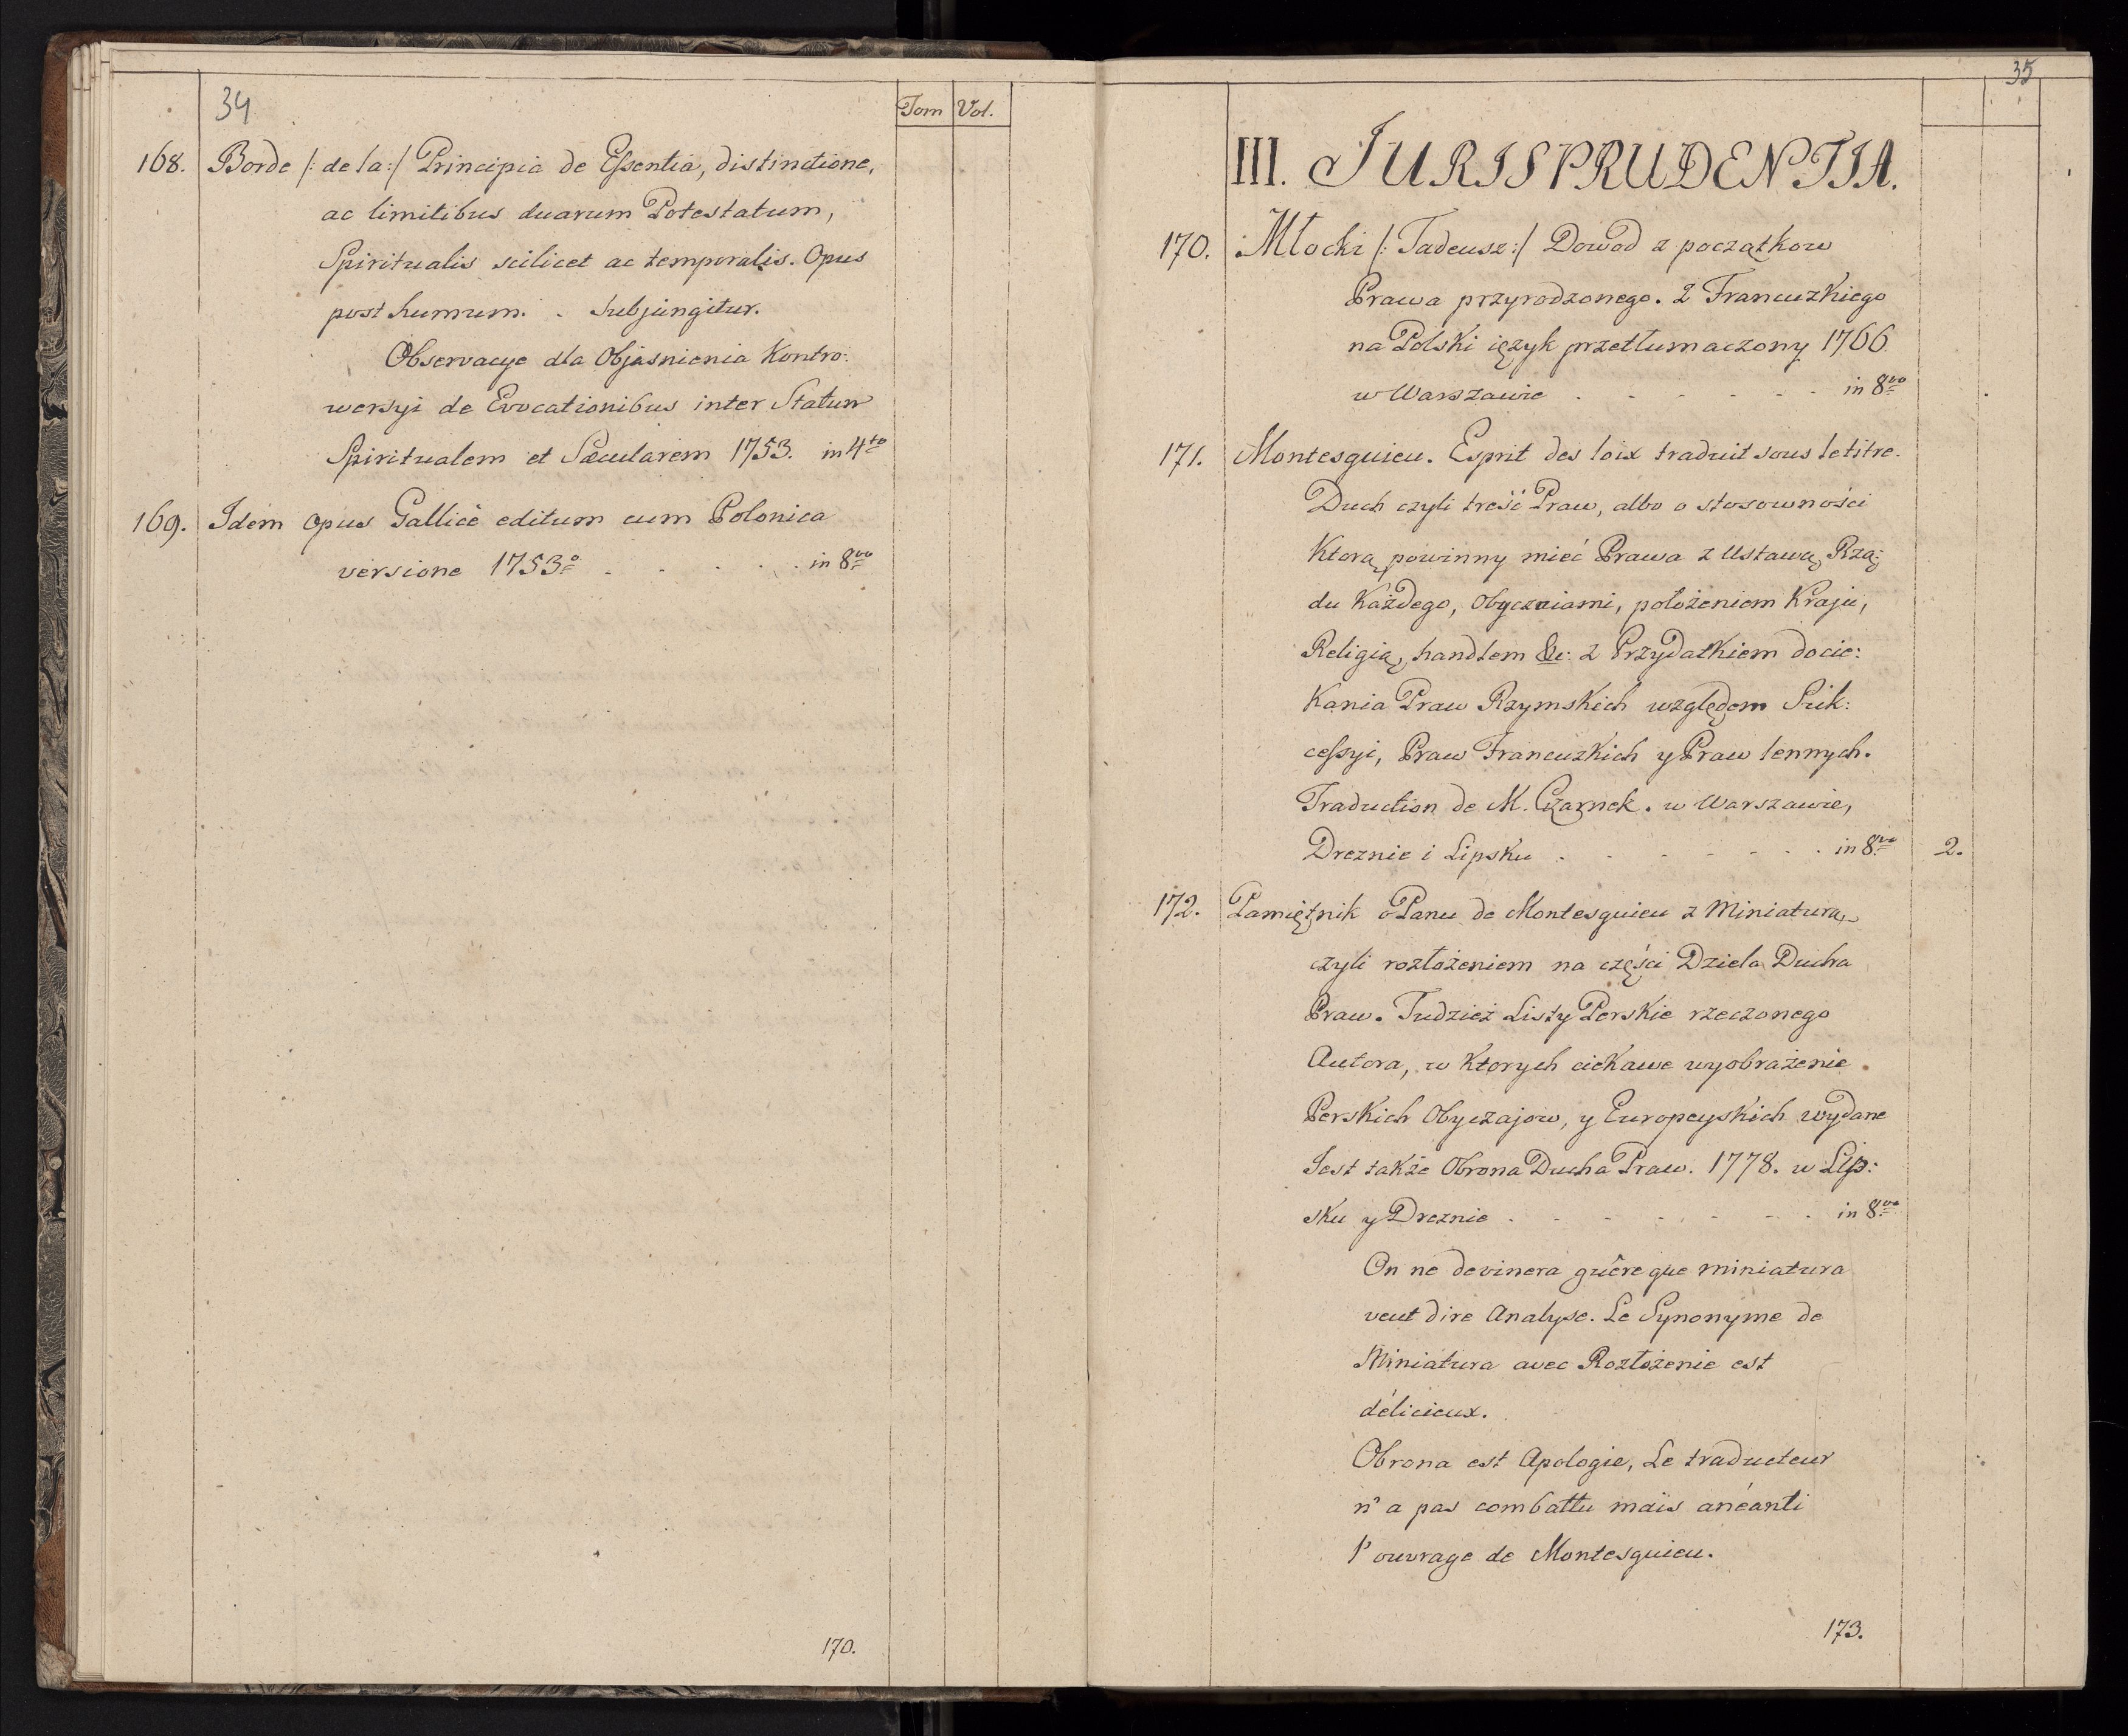 34
Tom Vol.
168. Borde /: de la :/ Principia de Essentia, distinctione,
ac limitibus duarum Potestatum,
Spiritualis scilicet ac temporalis. Opus
posthumum. . Subjungitur.
Observacye dla Objasnienia Kontro:
wersyi de Evocationibus inter Statum
Spiritualem et Sæcularem 1753. in 4to
169. Idem opus Gallicè editum cum Polonica
versione 1753o . . . . . in 8vo
170.
35
III. JURISPRUDENTIA.
170. Młocki /: Tadeusz :/ Dowod z początkow
Prawa przyrodzonego. Z Francuzkiego
na Polski ięzyk przetłumaczony 1766
w Warszawie . . . . . . in 8vo
171. Montesquieu. Esprit des loix traduit sous le titre.
Duch czyli treść Praw, albo o stosowności
Ktorą powinny mieć Prawa z Ustawą Rzą:
du Każdego, Obyczaiami, położeniem Kraju,
Religią, handlem &c: z Przydatkiem docie:
Kania Praw Rzymskich względem Suk:
cessyi, Praw Francuzkich y Praw lennych.
Traduction de M. Czarnek. w Warszawie,
Dreznie i Lipsku . . . . . . . in 8vo 2.
172. Pamiętnik o Panu de Montesquieu z Miniaturą
czyli rozłożeniem na części Dzieła Ducha
Praw. Tudzież Listy Perskie rzeczonego
Autora, w Ktorych ciekawe wyobrażenie
Perskich Obyczajow, y Europeyskich wydane
Jest także Obrona Ducha Praw. 1778. w Lip:
sku y Dreznie . . . . . . . in 8vo
On ne devinera guêre que miniatura
veut dire Analyse. Le Synonyme de
Miniatura avec Rozłożenie est
délicieux.
Obrona est Apologie, Le traducteur
n'a pas combattu mais anéanti
l'ouvrage de Montesquieu.
173.